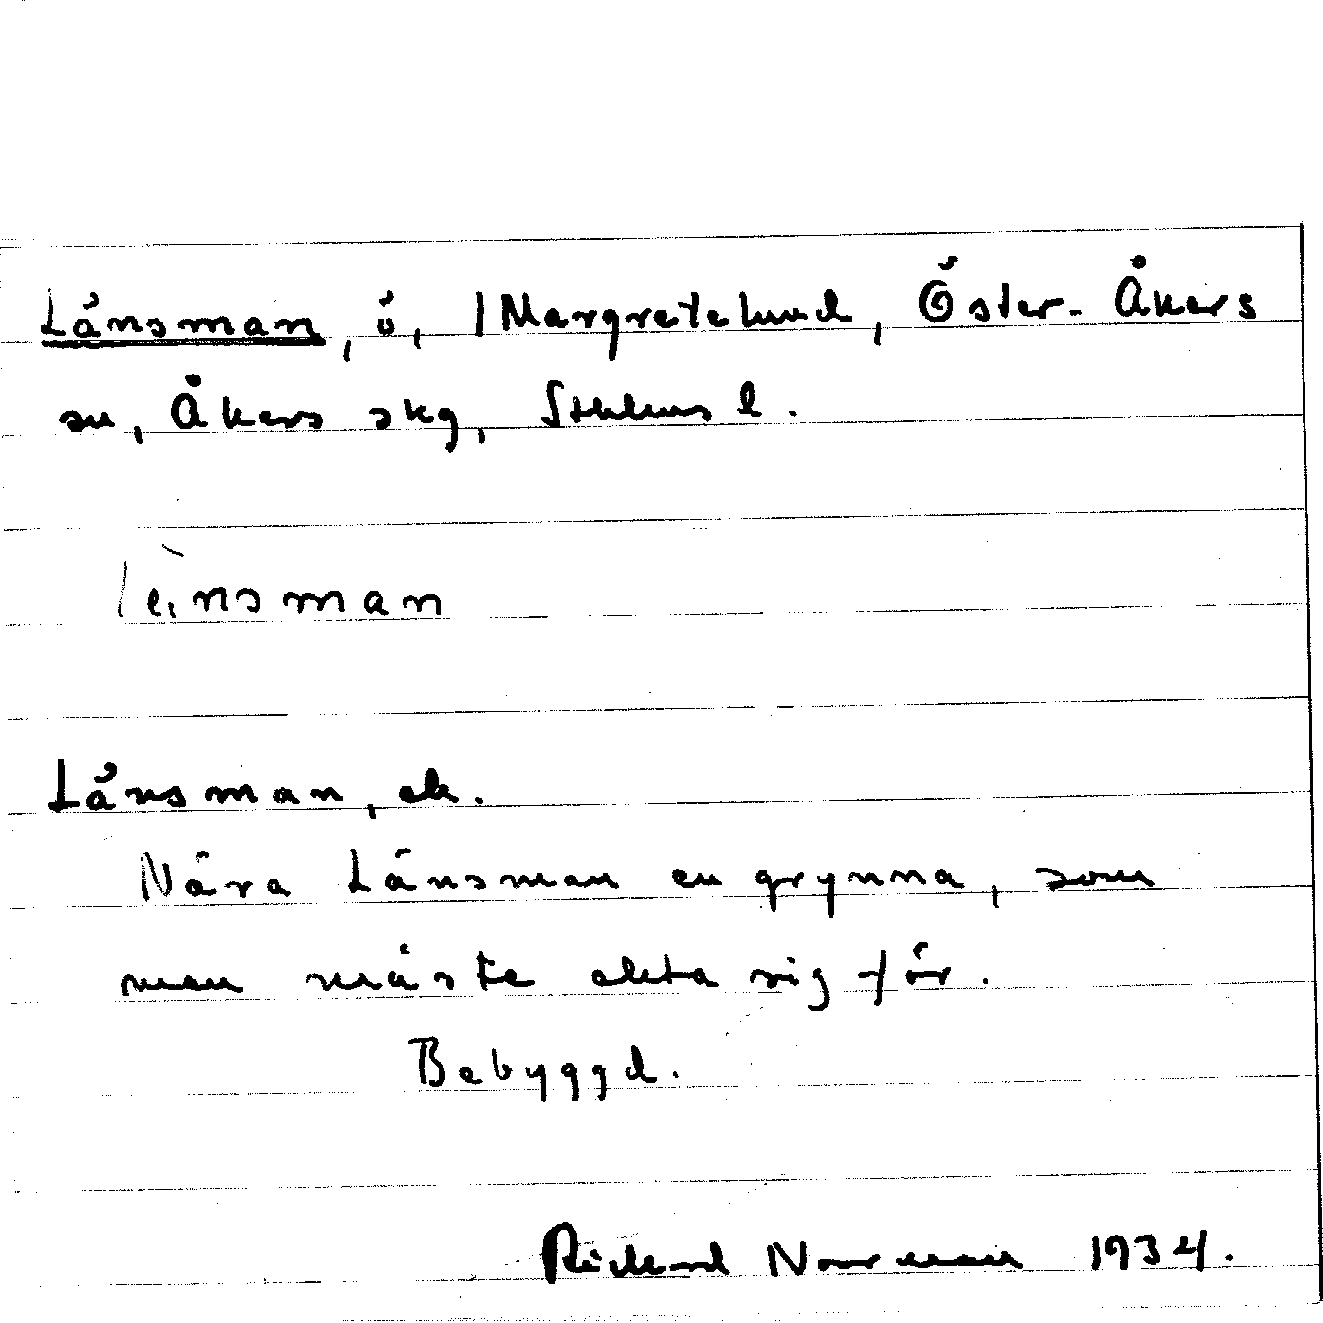 Länsman, ö, Margretelund, Öster-Åkers
sn, Åkers skg, Sthlms l.
lènsman
Länsman, ek.
Nära Länsman en grynna, som
man måste akta sig för.
Bebyggd.
Richard Norrman 1934.